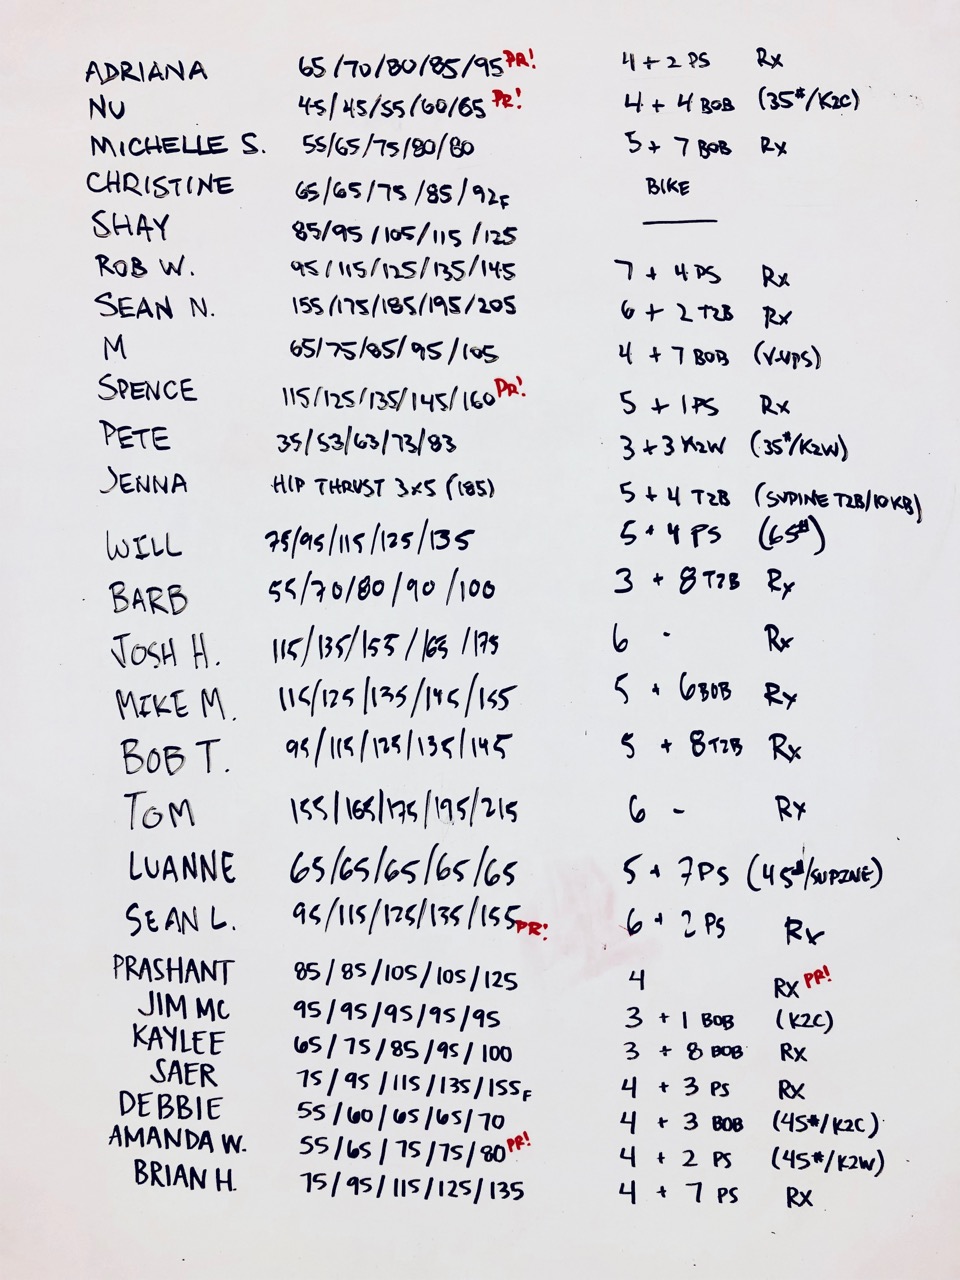 ADRIANA 65/70/80/85/95 PR! 4 + 2 PS Rx
NU 45/45/55/60/65 PR! 4 + 4 BOB (35#/K2C)
MICHELLE S. 55/65/75/80/80 5 + 7 BOB Rx
CHRISTINE 65/65/75/85/92F BIKE
SHAY 85/95/105/115/125 —
ROB W. 95/115/125/135/145 7 + 4 PS Rx
SEAN N. 155/175/185/195/205 6 + 2 T2B Rx
M 65/75/85/95/105 4 + 7 BOB (V-UPS)
SPENCE 115/125/135/145/160 PR! 5 + 1 PS Rx
PETE 35/53/63/73/83 3 + 3 K2W (35#/K2W)
JENNA HIP THRUST 3x5 (185) 5 + 4 T2B (SUPINE T2B/10KB)
WILL 75/95/115/125/135 5 + 4 PS (65#)
BARB 55/70/80/90/100 3 + 8 T2B Rx
JOSH H. 115/135/155/165/175 6 - Rx
MIKE M. 115/125/135/145/155 5 + 6 BOB Rx
BOB T. 95/115/125/135/145 5 + 8 T2B Rx
TOM 155/165/175/195/215 6 - Rx
LUANNE 65/65/65/65/65 5 + 7 PS (45#/SUPINE)
SEAN L. 95/115/125/135/155 PR! 6 + 2 PS Rx
PRASHANT 85/85/105/105/125 4 Rx PR!
JIM MC 95/95/95/95/95 3 + 1 BOB (K2C)
KAYLEE 65/75/85/95/100 3 + 8 BOB Rx
SAER 75/95/115/135/155F 4 + 3 PS Rx
DEBBIE 55/60/65/65/70 4 + 3 BOB (45#/K2C)
AMANDA W. 55/65/75/75/80 PR! 4 + 2 PS (45#/K2W)
BRIAN H. 75/95/115/125/135 4 + 7 PS Rx